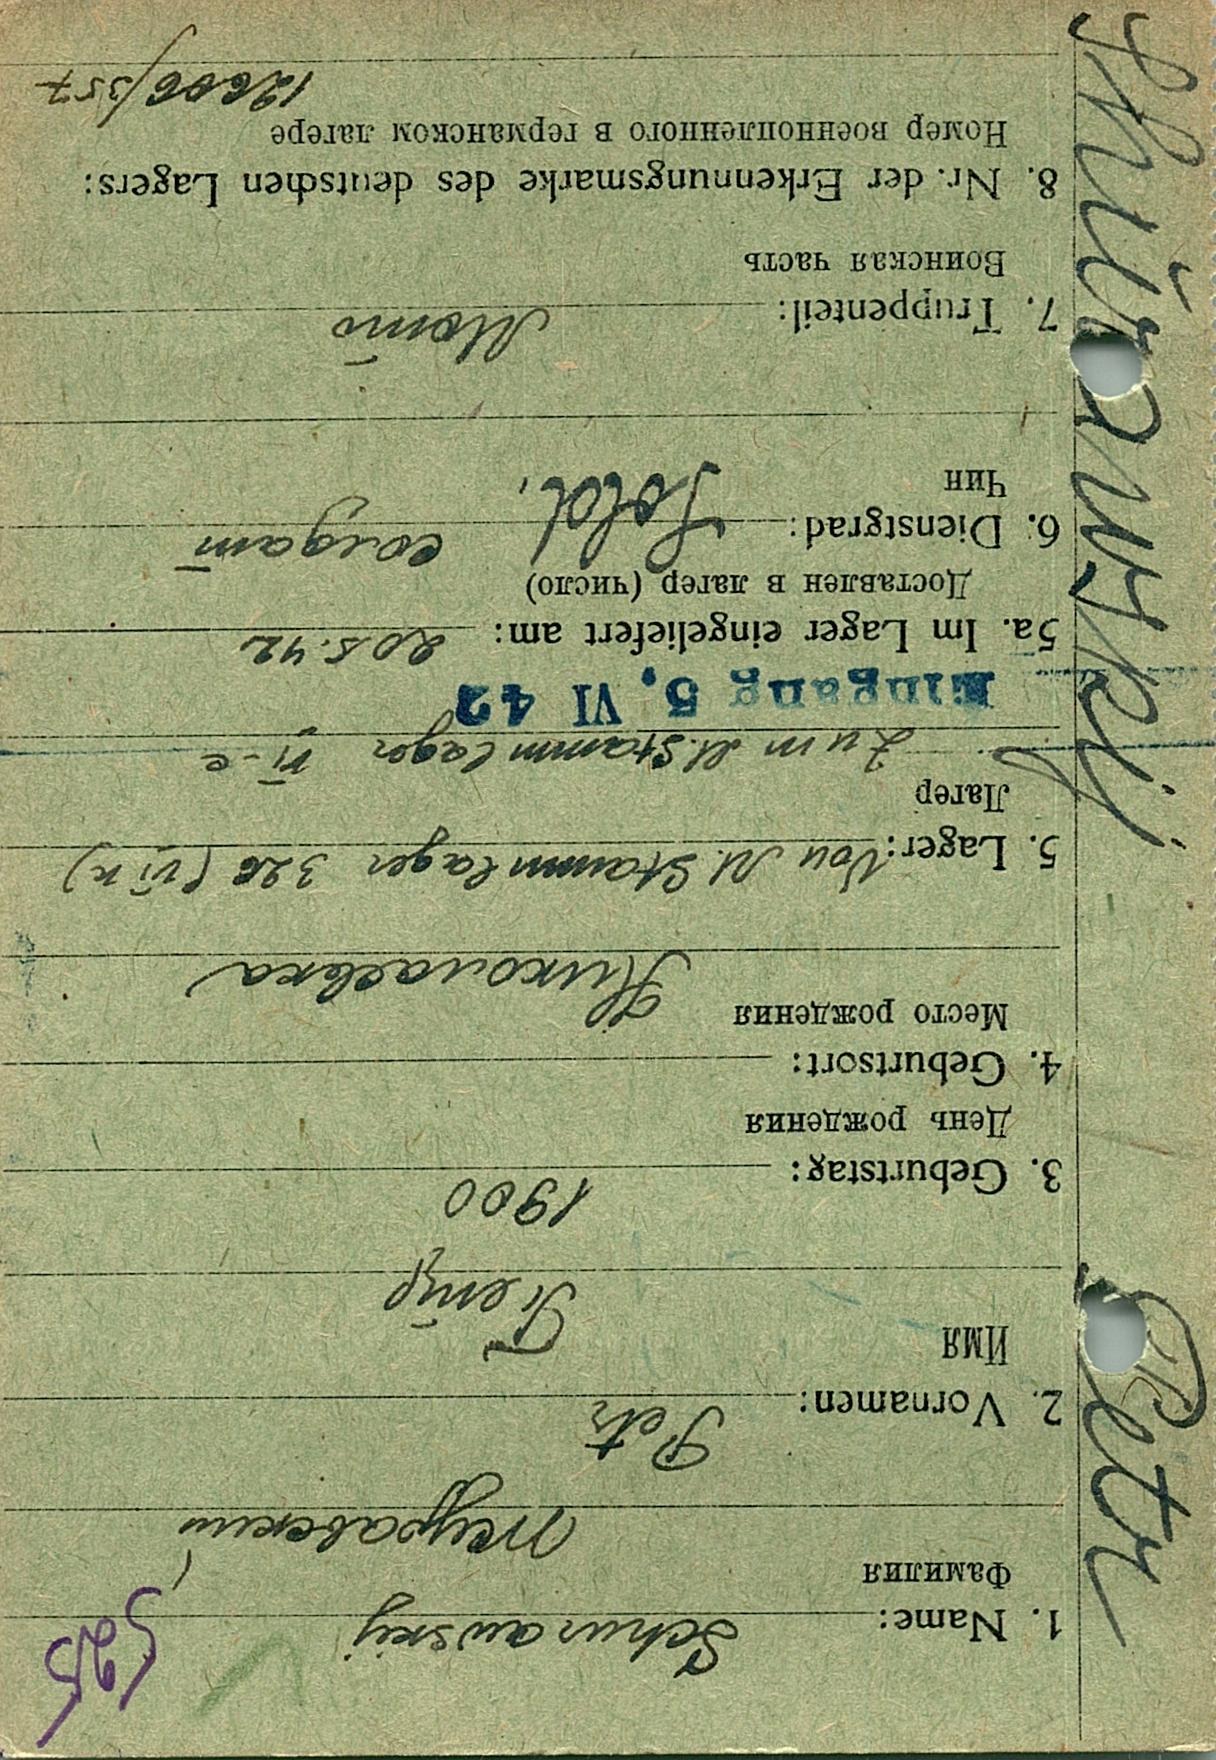 525
1. Name: Schurawskij
Фамилия Журавский
2. Vornamen: Petr
Имя Петр
3. Geburtstag: 1900
День рождения
4. Geburtsort:
Место рождения Николаевка
5. Lager: Von M. Stammlager 326 (VI K)
Лагер
Zum M. Stammlager VI-C
Eingang 5. VI 42
5a. Im Lager eingeliefert am: 20.5.42
Доставлен в лагер (число)
6. Dienstgrad: Sold. солдат
Чин
7. Truppenteil:
Воинская часть
8. Nr. der Erkennungsmarke des deutschen Lagers:
Номер военнопленного в германском лагере
Petr